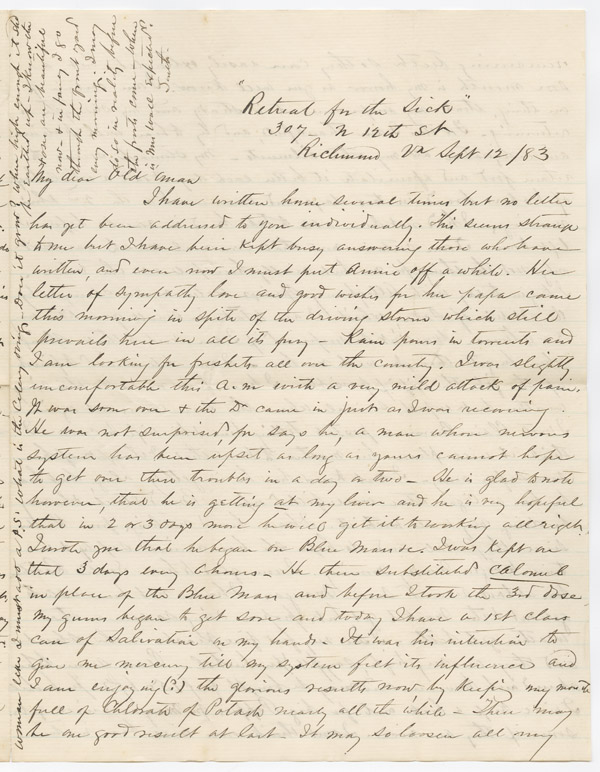 "Retreat for the Sick"
307 - N 12th St
Richmond Va Sept 12/83
My dear Old 'oman
I have written home several times but no letter
has yet been addressed to you individually. This seems strange
to me but I have been kept busy answering those who have
written, and even now I must put Annie off a while. Her
letter of sympathy love and good wishes for her papa came
this morning in spite of the driving storm which still
prevails here in all its fury - Rain pours in torrents and
I am looking for freshets all over the country. I was slightly
uncomfortable this A.m with a very mild attack of pain.
It was soon over & the Dr came in just as I was recovering.
He was not surprised for says he, a man whose nervous
system has been upset as long as yours cannot hope
to get over these troubles in a day or two - He is glad to note
however, that he is getting at my liver and he is very hopeful
that in 2 or 3 days more he will get it to working all right.
I wrote you that he began on Blue Mass &c. I was kept on
that 3 days every 6 hours - He then substituted Calomel
in place of the Blue Mass and before I took the 3rd dose
my gums began to get sore and today I have a 1st class
case of Salivation on my hands - It was his intention to
give me mercury till my system felt its influence and
I am enjoying (?) the glorious results now by keeping my mouth
full of Chlorate of Potash nearly all the while - There may
be one good result at last - It may so loosen all my
woman like I must add a P.S. What is the Celery doing - Does it grow? When high enough it should
be earthed up - I know the
roses are beautiful
now - & in fancy I go
through the front yard
every morning. I may
do so in reality before
the frosts come - when
is Miss expected?